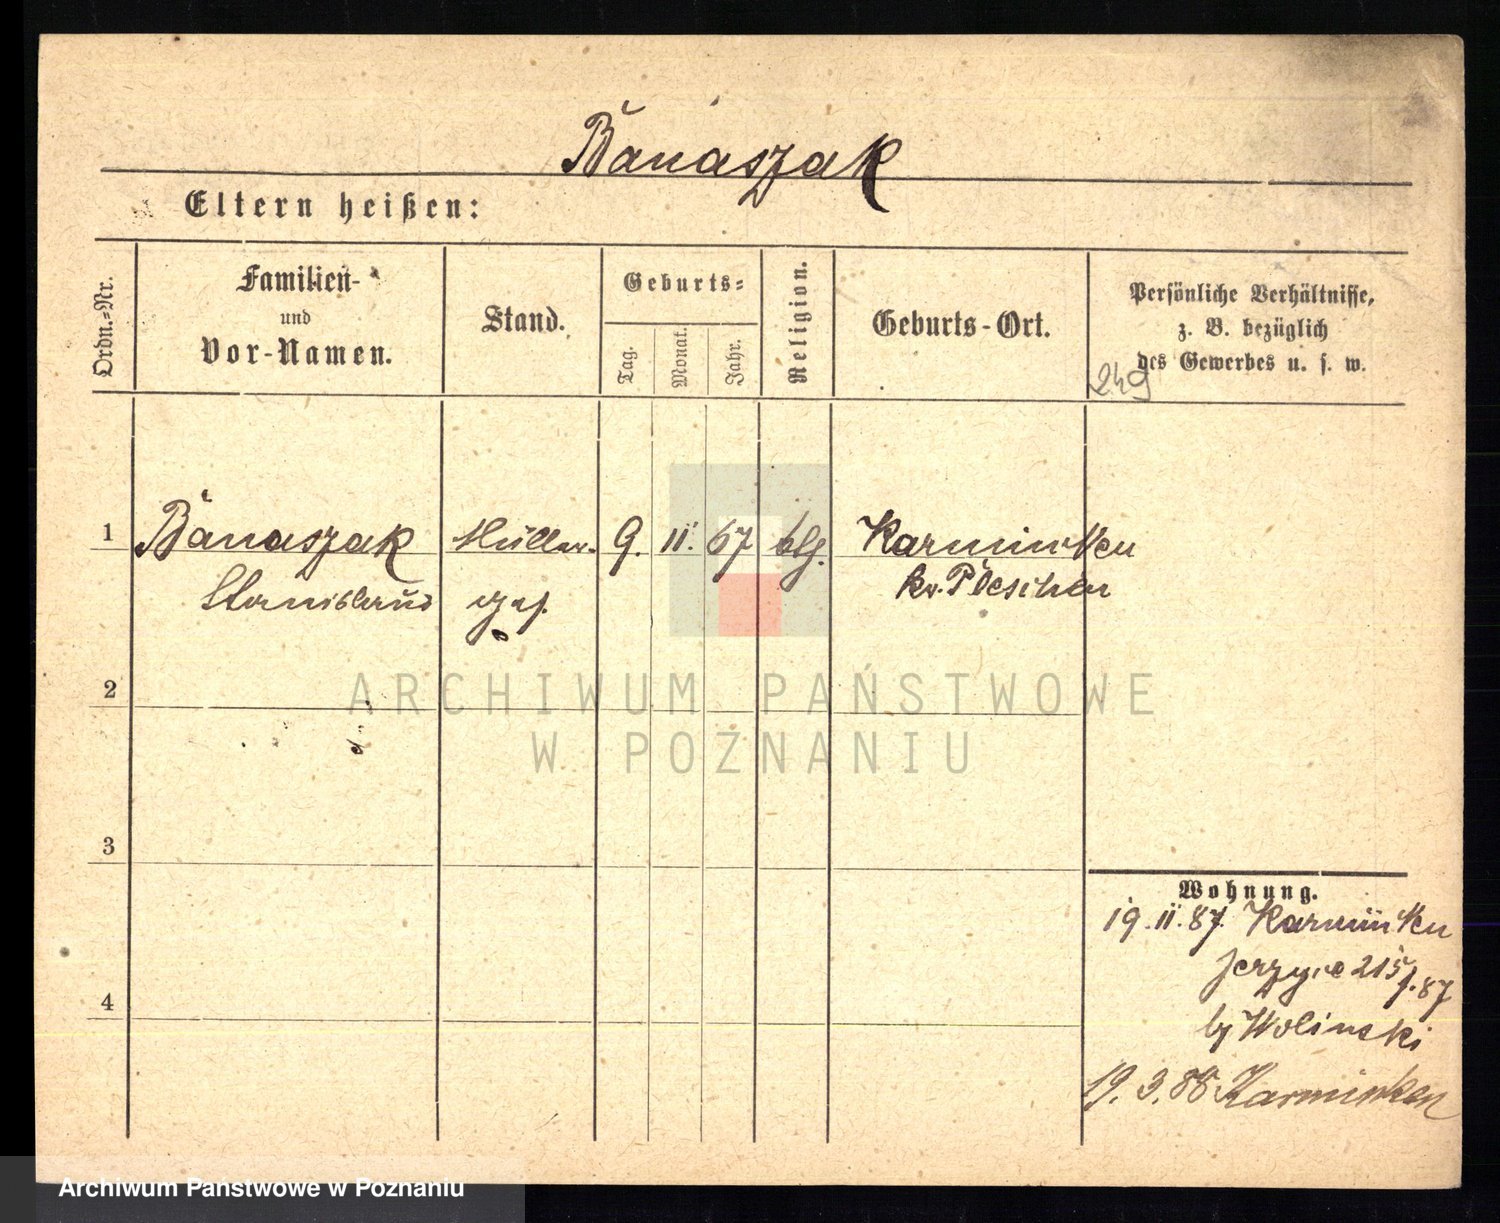 Banaszak
Eltern heißen:
Ordn.-Nr.
Familien-
und
Vor-Namen.
Stand.
Geburts-
Tag.
Monat.
Jahr.
Religion.
Geburts-Ort.
Persönliche Verhältnisse,
z. B. bezüglich
des Gewerbes u. s. w.
249
1 Banaszak Müller- 9. II. 67 ktl. Karminken
Stanislaus ges. kr. Pleschen
2
3
4
Wohnung.
19. II. 87. Karminken
Jerzyce 87
by Wolinski
19. 3. 88 Karminken
ARCHIWUM PAŃSTWOWE
W POZNANIU
Archiwum Państwowe w Poznaniu